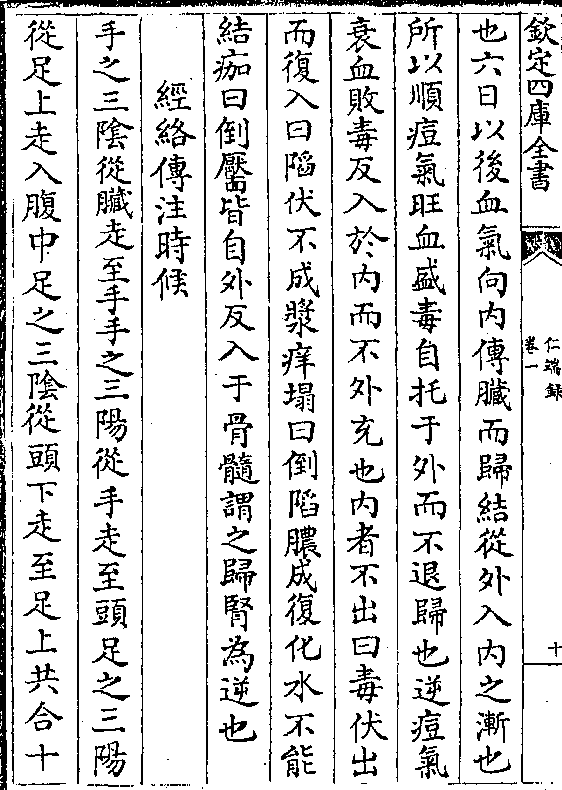 欽定四庫全書
仁端録
卷一
十
也六日以後血氣向内傳臟而歸結從外入内之漸也
所以順痘氣旺血盛毒自托于外而不退歸也逆痘氣
衰血敗毒反入於内而不外充也内者不出曰毒伏出
而復入曰陷伏不成漿痒塌曰倒陷膿成復化水不能
結痂曰倒靨皆自外反入于骨髓謂之歸腎為逆也
經絡傳注時候
手之三陰從臟走至手手之三陽從手走至頭足之三陽
從足上走入腹中足之三陰從頭下走至足上共合十